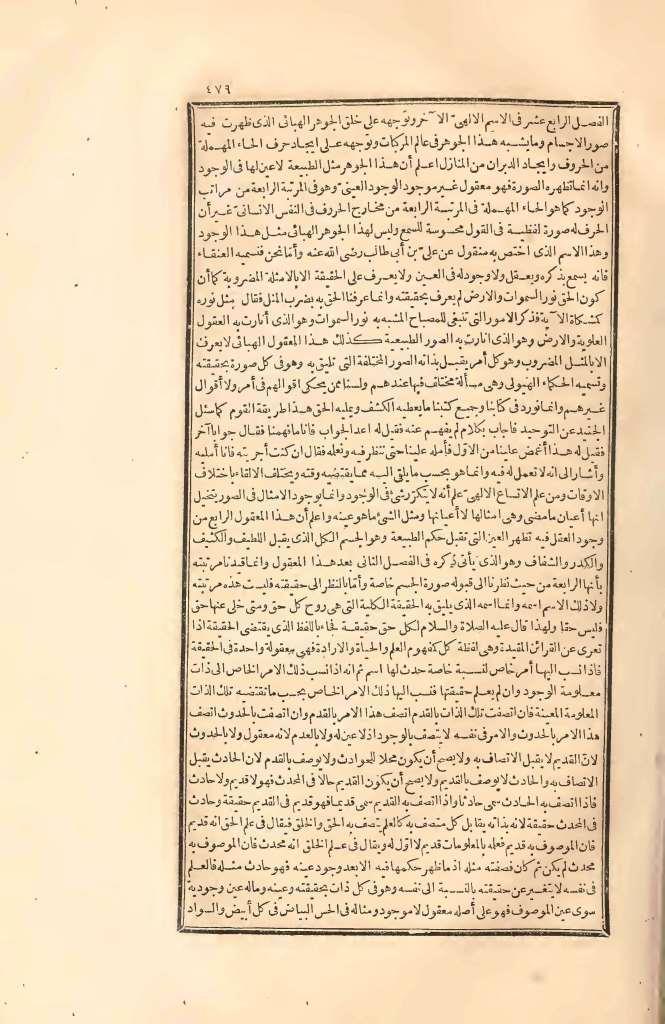 ٤٧٩
الفصل الرابع عشر فى الاسم الالهىّ الآخر وتوجهه على خلق الجوهر الهبائى الذى ظهرت فيه
صور الاجسام ومايشبه هذا الجوهر فى عالم المركبات وتوجهه على ايجاد حرف الحاء المهملة
من الحروف وايجاد الدبران من المنازل اعلم أن هذا الجوهر مثل الطبيعة لاعين لها فى الوجود
وانما تظهره الصورة فهو معقول غير موجود الوجود العينىّ وهو فى المرتبة الرابعة من مراتب
الوجود كما هو الحاء المهملة فى المرتبة الرابعة من مخارج الحروف فى النفس الانسانىّ غير أن
الحرف له صورة لفظية فى القول محسوسة للسمع وليس لهذا الجوهر الهبائى مثل هذا الوجود
وهذا الاسم الذى اختص به منقول عن علىّ بن أبى طالب رضى الله عنه وأما نحن فنسميه العنقاء
فانه يسمع بذكره ويعقل ولا وجود له فى العين ولا يعرف على الحقيقة الا بالامثلة المضروبة كما أن
كون الحق نور السموات والارض لم يعرف بحقيقته وانما عرفنا الحق به بضرب المثل فقال مثل نوره
كمشكاة الآية فذكر الامور التى تنبغى للمصباح المشبه به نور السموات وهو الذى أنارت به العقول
العلوية والارض وهو الذى انارت به الصور الطبيعية كذلك هذا المعقول الهبائى لا يعرف
الا بالمثل المضروب وهو كل أمر يقبل بذاته الصور المختلفة التى تليق به وهو فى كل صورة بحقيقته
وتسميه الحكماء الهيولى وهى مسألة مختلف فيها عندهم ولسنا ممن يحكى اقوالهم فى أمر ولا أقوال
غيرهم وانما نورد فى كتابنا وجميع كتبنا ما يعطيه الكشف ويمليه الحق هذا طريقة القوم كما سئل
الجنيد عن التوحيد فاجاب بكلام لم يفهم عنه فقيل له اعد الجواب فانا ما فهمنا فقال جوابا آخر
فقيل له هذا أغمض علينا من الاوّل فأمله علينا حتى ننظر فيه ونعلمه فقال ان كنت أجريته فانا أمليه
وأشار الى انه لا تعمل له فيه وانما هو بحسب ما يلقى اليه مما يقتضيه وقته ويختلف الالقاء باختلاف
الاوقات ومن علم الاتساع الالهىّ علم أنه لا يتكرّر شئ فى الوجود وانما وجود الامثال فى الصور يتخيل
انها أعيان ما مضى وهى امثالها لا أعيانها ومثل الشئ ما هو عينه واعلم أن هذا المعقول الرابع من
وجود العقل فيه تظهر العين التى تقبل حكم الطبيعة وهو الجسم الكل الذى يقبل اللطيف والكثيف
والكدر والشفاف وهو الذى يأتى ذكره فى الفصل الثانى بعد هذا المعقول وانما قيدنا مرتبته
بأنها الرابعة من حيث نظرنا الى قبوله صورة الجسم خاصة وأما بالنظر الى حقيقته فليست هذه مرتبته
ولا ذلك الاسم اسمه وانما اسمه الذى يليق به الحقيقة الكلية التى هى روح كل حق ومتى خلى عنها حق
فليس حقا ولهذا قال عليه الصلاة والسلام لكل حق حقيقة فجاء باللفظ الذى يقتضى الحقيقة اذا
تعرى عن القرائن المقيدة وهى لفظة كل كمفهوم العلم والحياة والارادة فهى معقولة واحدة فى الحقيقة
فاذا نسب اليها أمر خاص لنسبة خاصة حدث لها اسم ثم انه اذا نسب ذلك الامر الخاص الى ذات
معلومة الوجود وان لم يعلم حقيقتها فنسب اليها ذلك الامر الخاص بحسب ما تقتضيه تلك الذات
المعلومة المعينة فان اتصفت تلك الذات بالقدم اتصف هذا الامر بالقدم وان اتصفت بالحدوث اتصف
هذا الامر بالحدوث والامر فى نفسه لا يتصف بالوجود اذ لا عين له ولا بالعدم لانه معقول ولا بالحدوث
لانّ القديم لا يقبل الاتصاف به ولا يصح أن يكون محلا للحوادث ولا يوصف بالقدم لان الحادث يقبل
الاتصاف به والحادث لا يوصف بالقديم ولا يصح أن يكون القديم حالا فى المحدث فهو لا قديم ولا حادث
فاذا اتصف به الحادث سمى حادثا واذا اتصف به القديم سمى قديما فهو قديم فى القديم حقيقة وحادث
فى المحدث حقيقة لانه بذاته يقابل كل متصف به كالعلم يتصف به الحق والخلق فيقال فى علم الحق انه قديم
فان الموصوف به قديم فعلمه بالمعلومات قديم لا اوّل له ويقال فى علم الخلق انه محدث فان الموصوف به
محدث لم يكن ثم كان فصفته مثله اذ ما ظهر حكمها فيه الا بعد وجود عينه فهو حادث مثله فالعلم
فى نفسه لا يتغير عن حقيقته بالنسبة الى نفسه وهو فى كل ذات بحقيقته وعينه وماله عين وجودية
سوى عين الموصوف فهو على أصله معقول لا موجود ومثاله فى الحس البياض فى كل أبيض والسواد